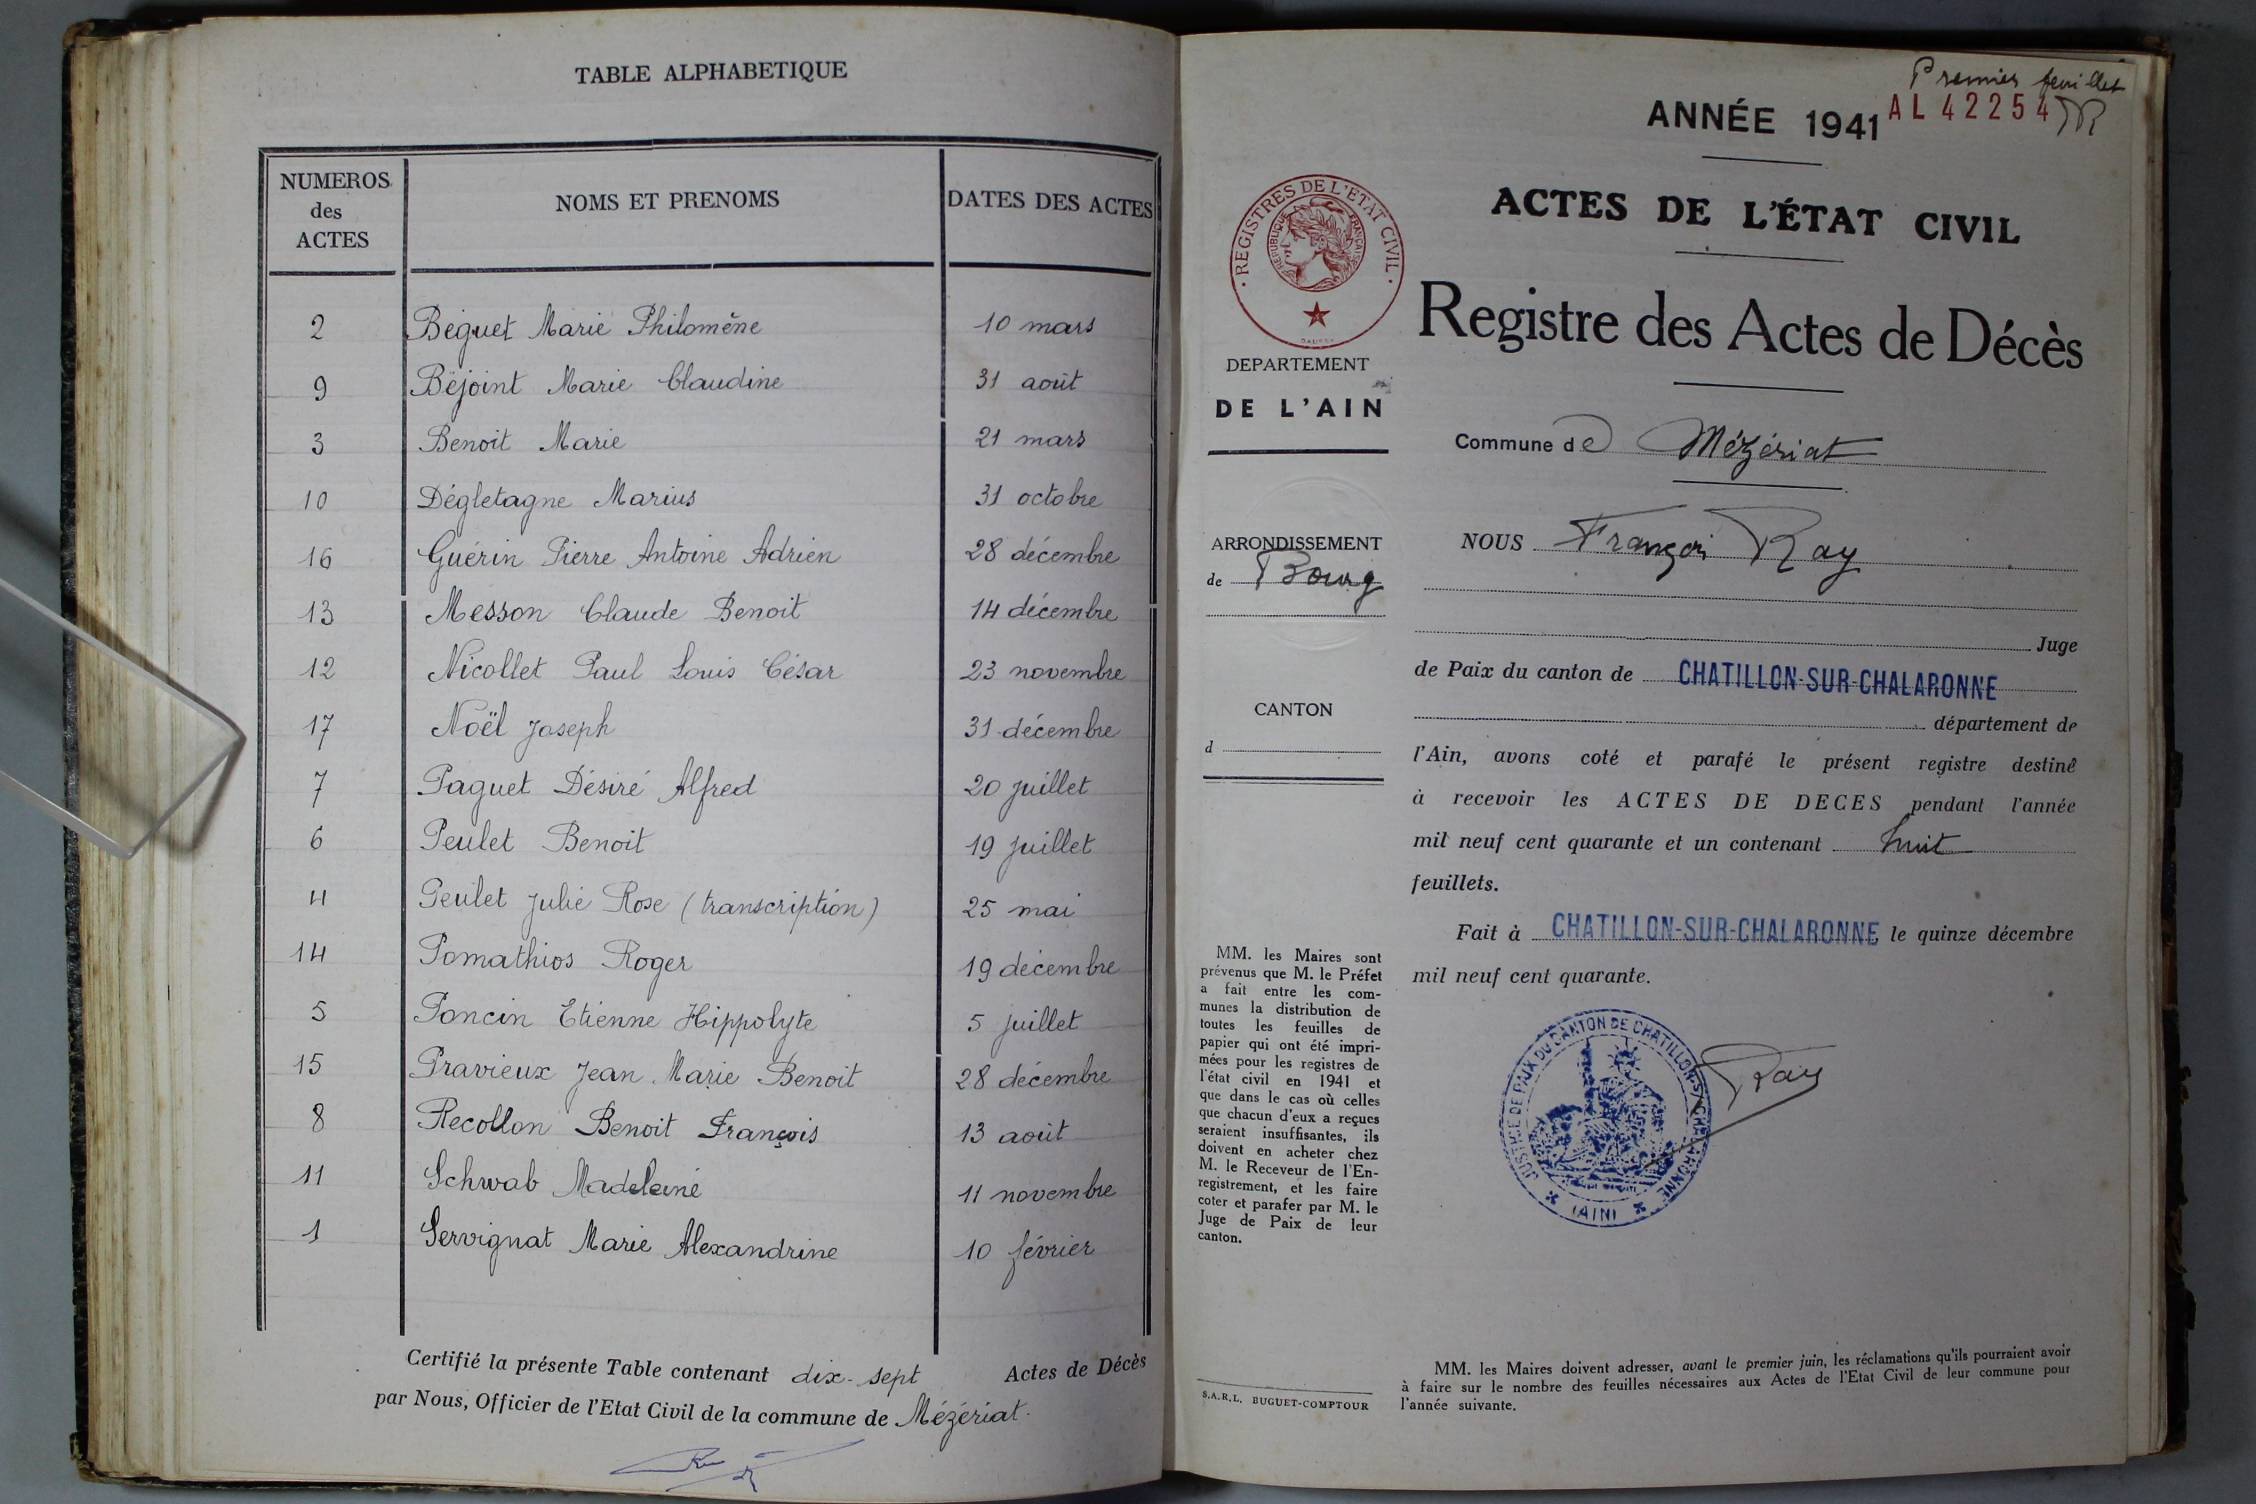 TABLE ALPHABETIQUE
NUMEROS des ACTES NOMS ET PRENOMS DATES DES ACTES
2 Béguet Marie Philomène 10 mars
9 Béjoint Marie Claudine 31 août
3 Benoit Marie 21 mars
10 Dégletagne Marius 31 octobre
16 Guérin Pierre Antoine Adrien 28 décembre
13 Messon Claude Benoit 14 décembre
12 Nicollet Paul Louis César 23 novembre
17 Noël Joseph 31 décembre
7 Paquet Désiré Alfred 20 juillet
6 Peulet Benoit 19 juillet
4 Peulet Julie Rose (transcription) 25 mai
14 Pomathios Roger 19 décembre
5 Poncin Etienne Hippolyte 5 juillet
15 Pravieux Jean Marie Benoit 28 décembre
8 Recollon Benoit François 13 août
11 Schwab Madeleine 11 novembre
1 Servignat Marie Alexandrine 10 février
Certifié la présente Table contenant dix-sept Actes de Décès
par Nous, Officier de l'Etat Civil de la commune de Mézériat.
Premier feuillet
ANNÉE 1941 AL 42254
REGISTRES DE L'ETAT CIVIL
REPUBLIQUE FRANÇAISE
ACTES DE L'ÉTAT CIVIL
Registre des Actes de Décès
DEPARTEMENT
DE L'AIN
Commune de Mézériat
ARRONDISSEMENT
de Bourg
CANTON
d
NOUS François Ray
Juge
de Paix du canton de CHATILLON-SUR-CHALARONNE
département de
l'Ain, avons coté et parafé le présent registre destiné
à recevoir les ACTES DE DECES pendant l'année
mil neuf cent quarante et un contenant huit
feuillets.
Fait à CHATILLON-SUR-CHALARONNE le quinze décembre
mil neuf cent quarante.
JUSTICE DE PAIX DU CANTON DE CHATILLON-S/-CHALARONNE
(AIN)
Ray
MM. les Maires sont
prévenus que M. le Préfet
a fait entre les com-
munes la distribution de
toutes les feuilles de
papier qui ont été impri-
mées pour les registres de
l'état civil en 1941 et
que dans le cas où celles
que chacun d'eux a reçues
seraient insuffisantes, ils
doivent en acheter chez
M. le Receveur de l'En-
registrement, et les faire
coter et parafer par M. le
Juge de Paix de leur
canton.
S.A.R.L. BUGUET-COMPTOUR
MM. les Maires doivent adresser, avant le premier juin, les réclamations qu'ils pourraient avoir
à faire sur le nombre des feuilles nécessaires aux Actes de l'Etat Civil de leur commune pour
l'année suivante.